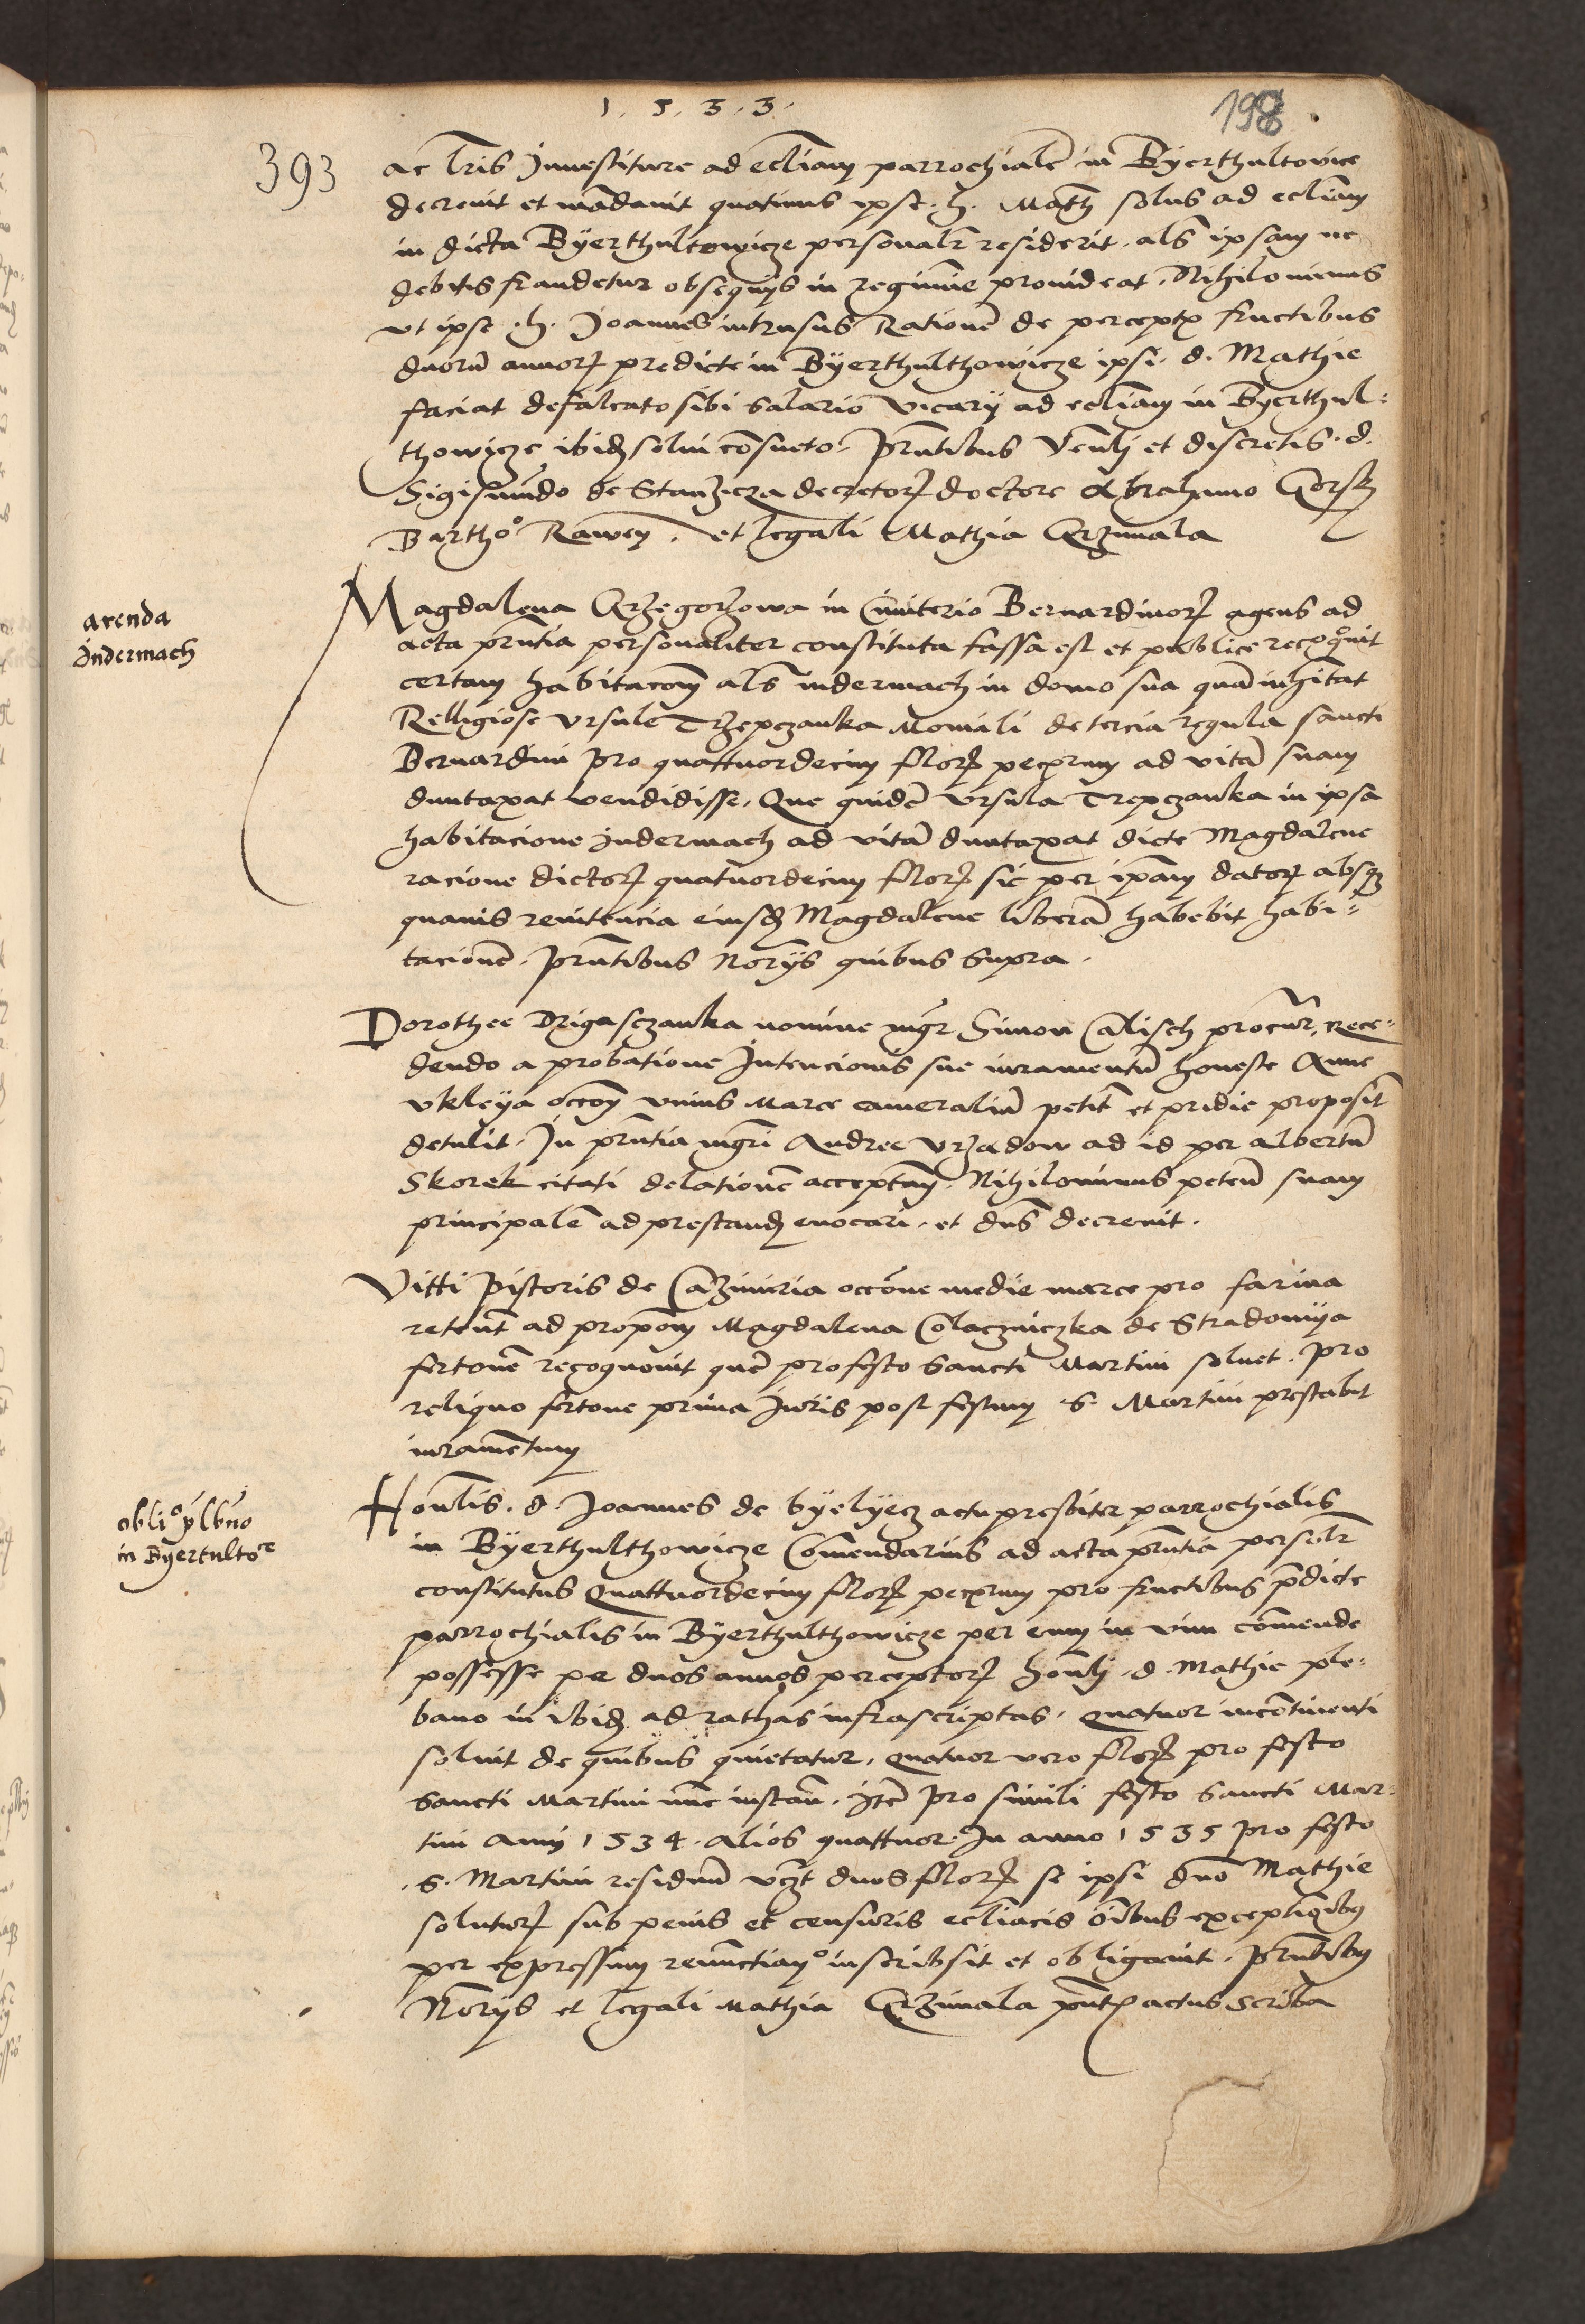 1 . 5 . 3 . 3 .
198
393
ac lris Inuestiture ad eccliam parrochiale in Byerthultowice
decreuit et madauit quatinus ipse . h . Math solus ad ecliam
in dicta Byerthultowicze personalr residerit . als ipsam ne
debitis fraudetur obsequijs in regimine prouideat . Nihilominus
vt ipse . h . Joannes intrusus Ratione de percept fructibus
duoru annor predicte in Byerthulthowicze ipsi . d . Mathie
faciat defalcato sibi salario vicarij ad ecliam in Byerthul-
thowicze ibid solui cosueto . Prntibus Venlj et discretis . d .
Sigismudo de Stanzicza decretor doctore Abrahamo Gorsky
Bartho Rawey . et legali Mathia Grzimala
arenda
Indermach
Magdalena Grzegorzowa in Cimiterio Bernardinor agens ad
acta prntia personaliter constituta fassa est et publice recoguit
certam habitacom als indermach in domo sua qua inhitat
Relligiose Vrsule Trzepczanka Moniali de tercia regula sancti
Bernardini pro quattuordecim flor pecprum ad vita suam
duntaxat vendidisse . Que quide Vrsula Trepczanka in ipsa
habitacione indermach ad vita duntaxat dicte Magdalene
racione dictor quatuordecim flor sic per ipam dator absq
quauis renitencia eiusd Magdalene libera habebit habi-
tacione . Prntibus Norijs quibus supra .
Dorothee Drigasczanka nomine mgr Simon Calisch procur , rece-
dendo a probatione Intencionis sue iuramentu honeste Anne
vkleya occom vnius Marce cameraliu petit et pridie proposit
detulit . In prntia mgri Andree Vrzadow ad id per albertu
Skorek citati delatione acceptam . Nihilominus petem suam
principale ad prestand euocari . et dns decreuit .
Vitti Pistoris de Cazimiria occone medie marce pro farina
retent ad propom Magdalena Colaczniczka de Stradomya
fertone recognouit que pro festo Sancti Martini soluet . Pro
reliquo fertone prima Iuris post festum . S . Martini prestabit
iurametum
oblio plbno
in Byertulto
Honlis . d . Joannes de byelyecz actu presbiter parrochialis
in Byerthulthowicze Comendarius ad acta prntia personlr
constitutus Quattuordecim flor pecprum pro fructibus pdicte
parrochialis in Byerthulthowicze per eum in vim comende
possesse per duos annos perceptor honlj . d . Mathie ple-
bano in ibid ad rathas infrascriptas . Quatuor incontinenti
soluit de quibus quietatur , quatuor vero flor pro festo
Sancti Martini nuc instan . Ite pro simili festo Sancti Mar-
tini Anni 1534 . alios quattuor . In anno 1535 pro festo
. S . Martini residuu vczt duos flor se ipsi dno Mathie
solutur sub penis et censuris ecliacis oibus exceptionibus
per expressum renunctiam inscribsit et obligauit . Prntibus
Norijs et legali Mathia Grzimala pnt actus scriba